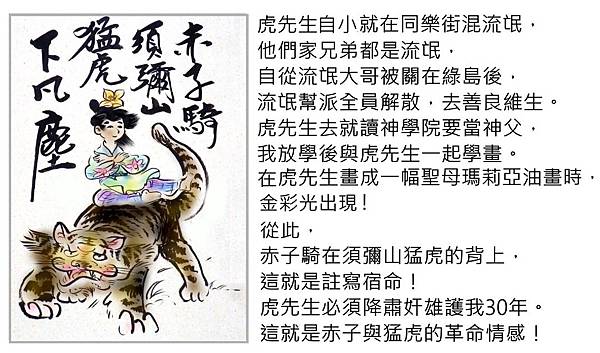 赤子騎
須彌山
猛虎
下凡塵
虎先生自小就在同樂街混流氓，
他們家兄弟都是流氓，
自從流氓大哥被關在綠島後，
流氓幫派全員解散，去善良維生。
虎先生去就讀神學院要當神父，
我放學後與虎先生一起學畫。
在虎先生畫成一幅聖母瑪莉亞油畫時，
金彩光出現!
從此，
赤子騎在須彌山猛虎的背上，
這就是註寫宿命！
虎先生必須降肅奸雄護我30年。
這就是赤子與猛虎的革命情感！